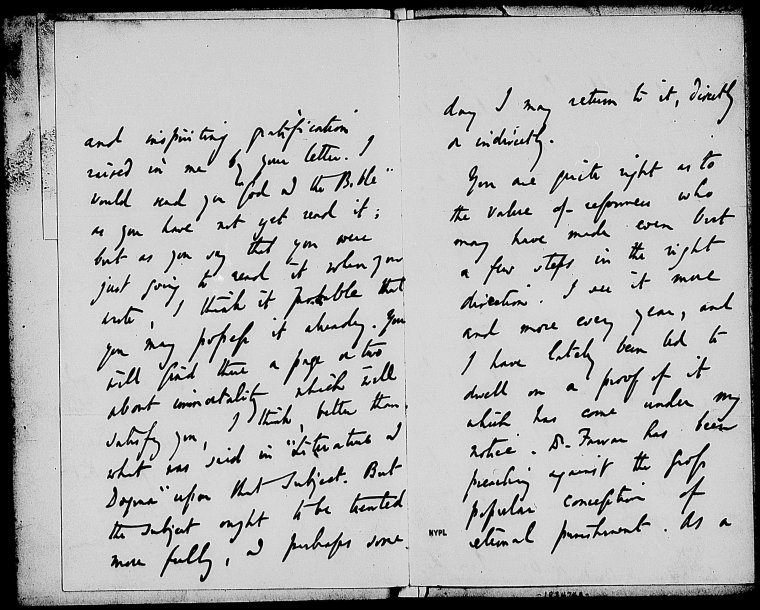 and inspiriting gratification
raised in me by your letter. I
would send you "God & the Bible"
as you have not yet read it;
but as you say that you were
just going to read it when you
wrote, I think it probable that
you may possess it already. You
will find there a page or two
about immortality which will
satisfy you, I think, better than
what was said in "Literature &
Dogma" upon that subject. But
the subject ought to be treated
more fully, & perhaps some
day I may return to it, directly
or indirectly.
You are quite right as to
the value of reformers who
may have made even but
a few steps in the right
direction. I see it more
and more every year, and
I have lately been led to
dwell on a proof of it
which has come under my
notice. Dr. Farrar has been
preaching against the gross
popular conception of
eternal punishment. As a
NYPL